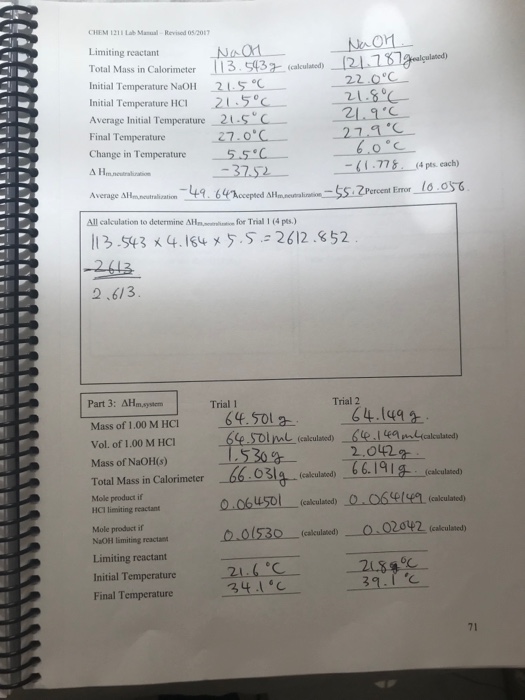 CHEM 1211 Lab Manual - Revised 05/2017
Limiting reactant NaOH NaOH
Total Mass in Calorimeter 113.543g (calculated) 121.787g (calculated)
Initial Temperature NaOH 21.5°C 22.0°C
Initial Temperature HCl 21.5°C 21.8°C
Average Initial Temperature 21.5°C 21.9°C
Final Temperature 27.0°C 27.9°C
Change in Temperature 5.5°C 6.0°C
Δ Hm,neutralization -37.52 -61.778 (4 pts. each)
Average ΔHm,neutralization -49.649 Accepted ΔHm,neutralization -55.2 Percent Error 10.056
All calculation to determine ΔHm,neutralization for Trial 1 (4 pts.)
113.543 × 4.184 × 5.5 = 2612.852
-2613
2.613
Part 3: ΔHm,system Trial 1 Trial 2
Mass of 1.00 M HCl 64.501g 64.149g
Vol. of 1.00 M HCl 64.501mL (calculated) 64.149mL (calculated)
Mass of NaOH(s) 1.530g 2.042g
Total Mass in Calorimeter 66.031g (calculated) 66.191g (calculated)
Mole product if
HCl limiting reactant 0.064501 (calculated) 0.064149 (calculated)
Mole product if
NaOH limiting reactant 0.01530 (calculated) 0.02042 (calculated)
Limiting reactant
Initial Temperature 21.6°C 21.8°C
Final Temperature 34.1°C 39.1°C
71